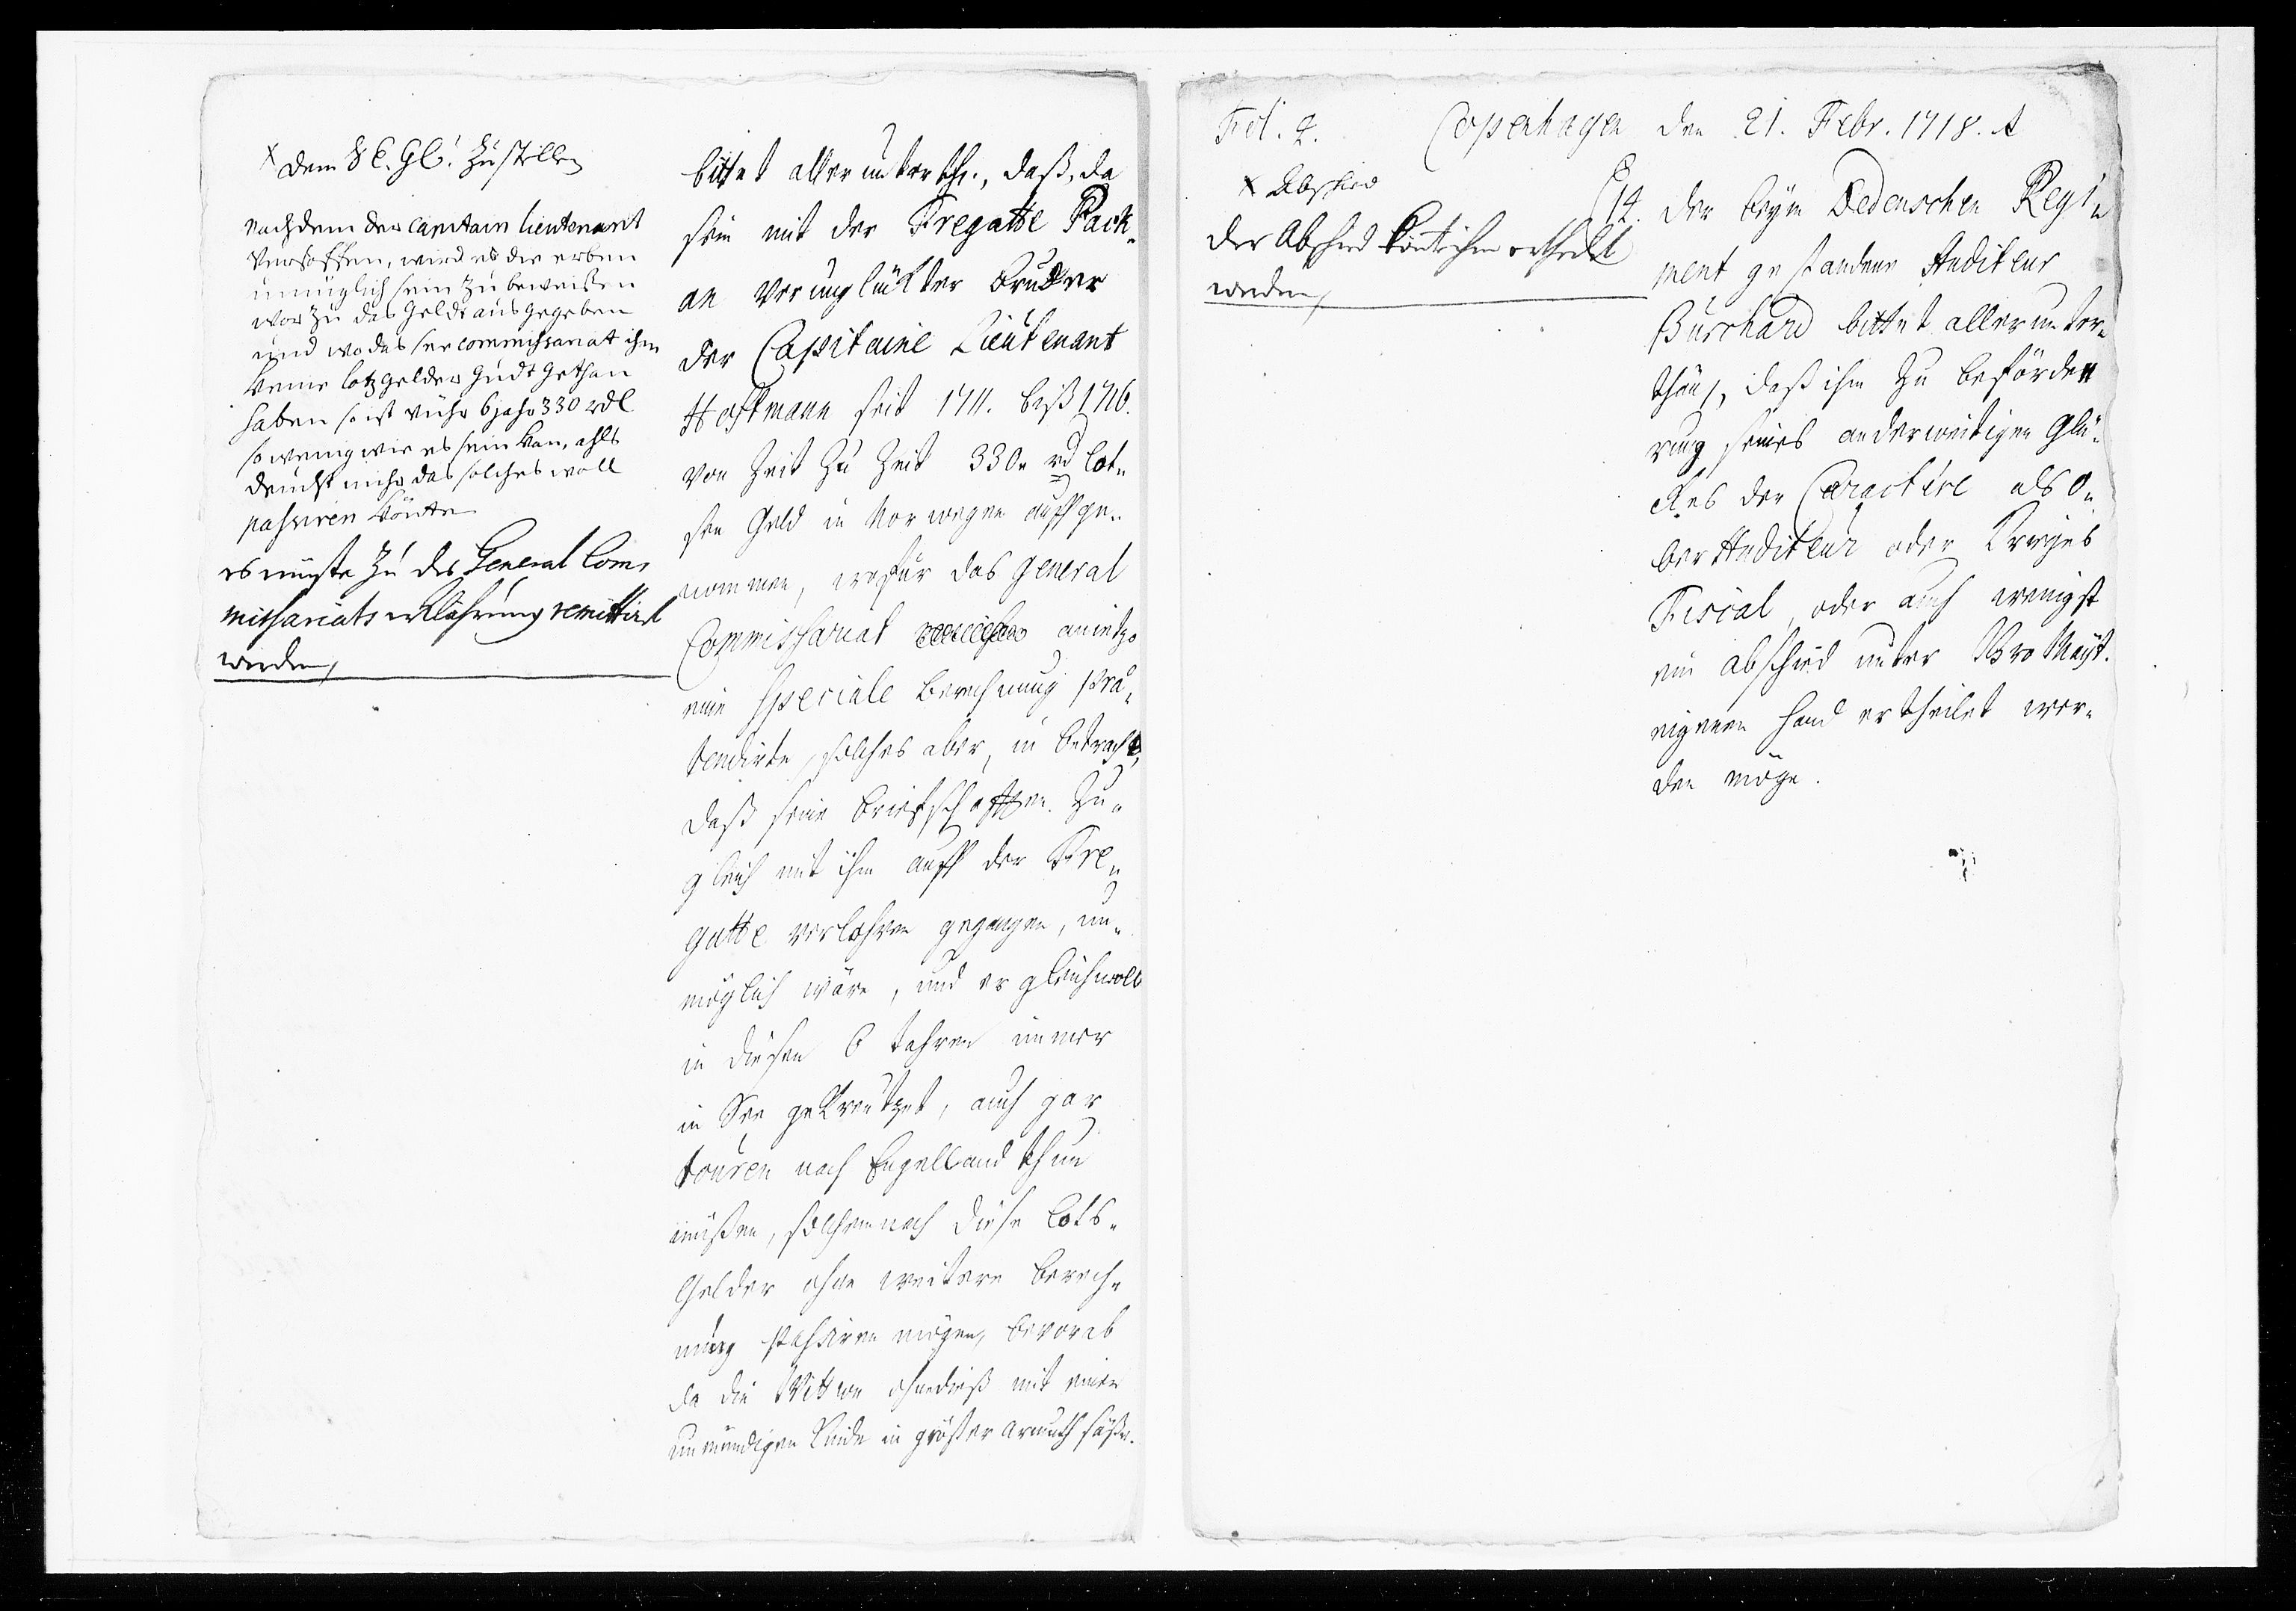 x dem zustellen
nachdem der capitain lieutenant
versoffen, wird es die erben
unmüglich sein zu beweisen
wor zu das geldt aus gegeben
und wo das see commissariat ihm
keine lotz gelder gudt gethan
haben so ist vuhr 6 jahr 330 rdl
so wenig wie es sein kan, alss
deucht mihr das solches woll
passiren könte
es müste zu des General Com,
missariats erklährung remittirt
werden,
bittet allerunterth., daß, da
sein mit der Fregatte Pack-
an verunglückter Bruder
der Capitaine Lieutenant
Hoffmann seit 1711. biß 1716.
von Zeit zu Zeit 330. rd lot-
sen Geld in Norwegen auffge-
nommen, wofür das General
Commissariat anietzo
eine speciale Berechnung prä-
tendirte, solches aber, in betracht,
daß seine Briefschafften zu-
gleich mit ihm auff der Fre-
gatte verlohren gegangen, un-
möglich wäre, und er gleichwoll
in diesen 6 Jahren immer
in See gekreutzet, auch gar
touren nach Engelland thun
müßen, solchemnach diese Lots-
Gelder ohne weitere Berech-
nung passiren mögen, bevorab
da die Wittwe ohnedieß mit einem
unmündigen Kinde in größter armuth säße.
Fol. 2. Copenhagen den 21. Febr. 1718. A
x Abschied
der Abschied könte ihm ertheilt
werden,
14. Der beym Dedenschen Regi-
ment gestandene Auditeur
Burchard bittet allerunter-
thän, daß ihm zu beförde-
rung seines anderweitigen Glü-
ckes der Caractère als O-
ber Auditeur oder Krieges
Fiscal, oder auch wenigst
ein abschied unter Ihro Mayt.
eigenen Hand ertheilet wer-
den möge.